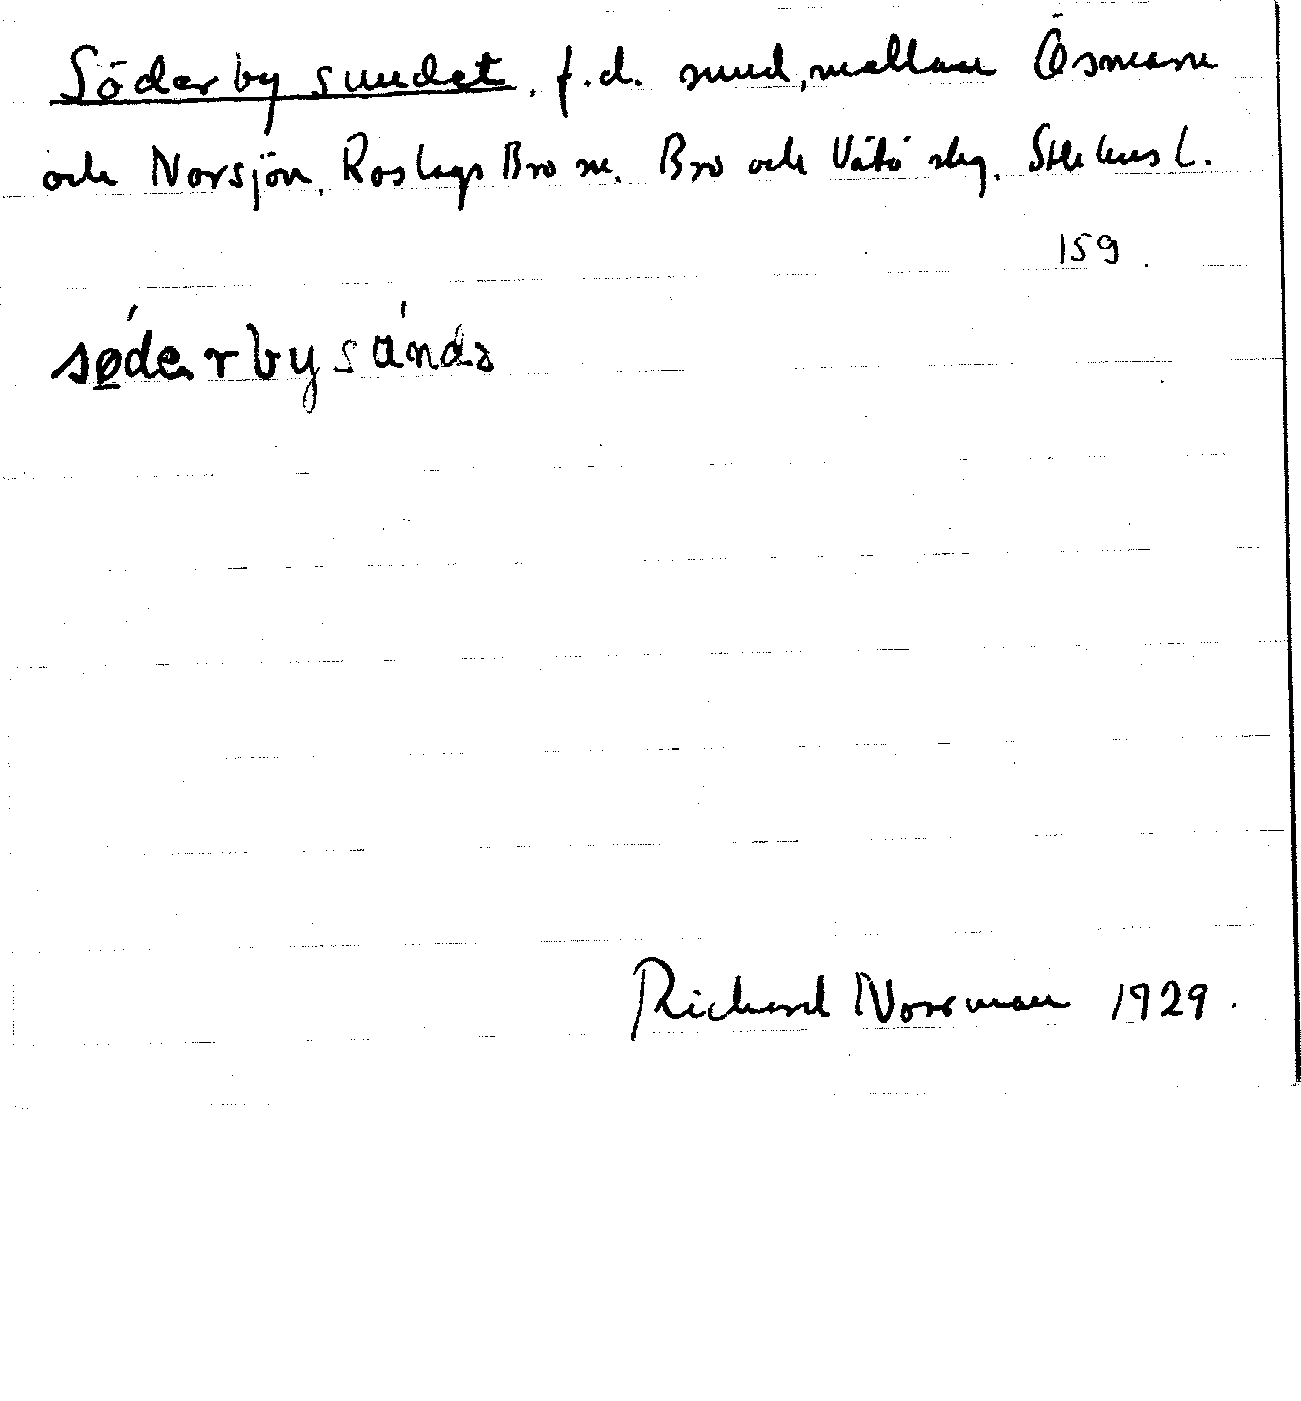 Söderbysundet, f.d. sund, mellan Ösmaren
och Norsjön, Roslags Bro sn. Bro och Vätö skg. Sthlms l.
159.
sǿ̲derbysúndə
Richard Norrman 1929.